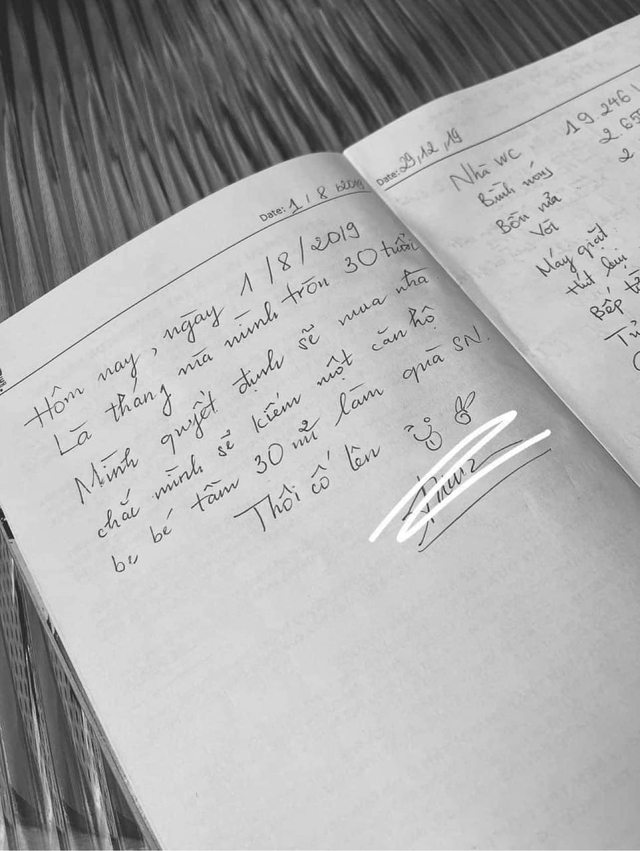 Date: 1 / 8 / 2019
Hôm nay, ngày 1/8/2019
Là tháng mà mình tròn 30 tuổi
Mình quyết định sẽ mua nhà
chắc mình sẽ kiếm một căn hộ
be bé tầm 30 m2 làm quà SN.
Thôi cố lên
Date: 29, 12, 19
Nhà WC 19.246
Bình nóng 2.65
Bồn rửa 2
Vòi
Máy giặt
Hút
Bếp